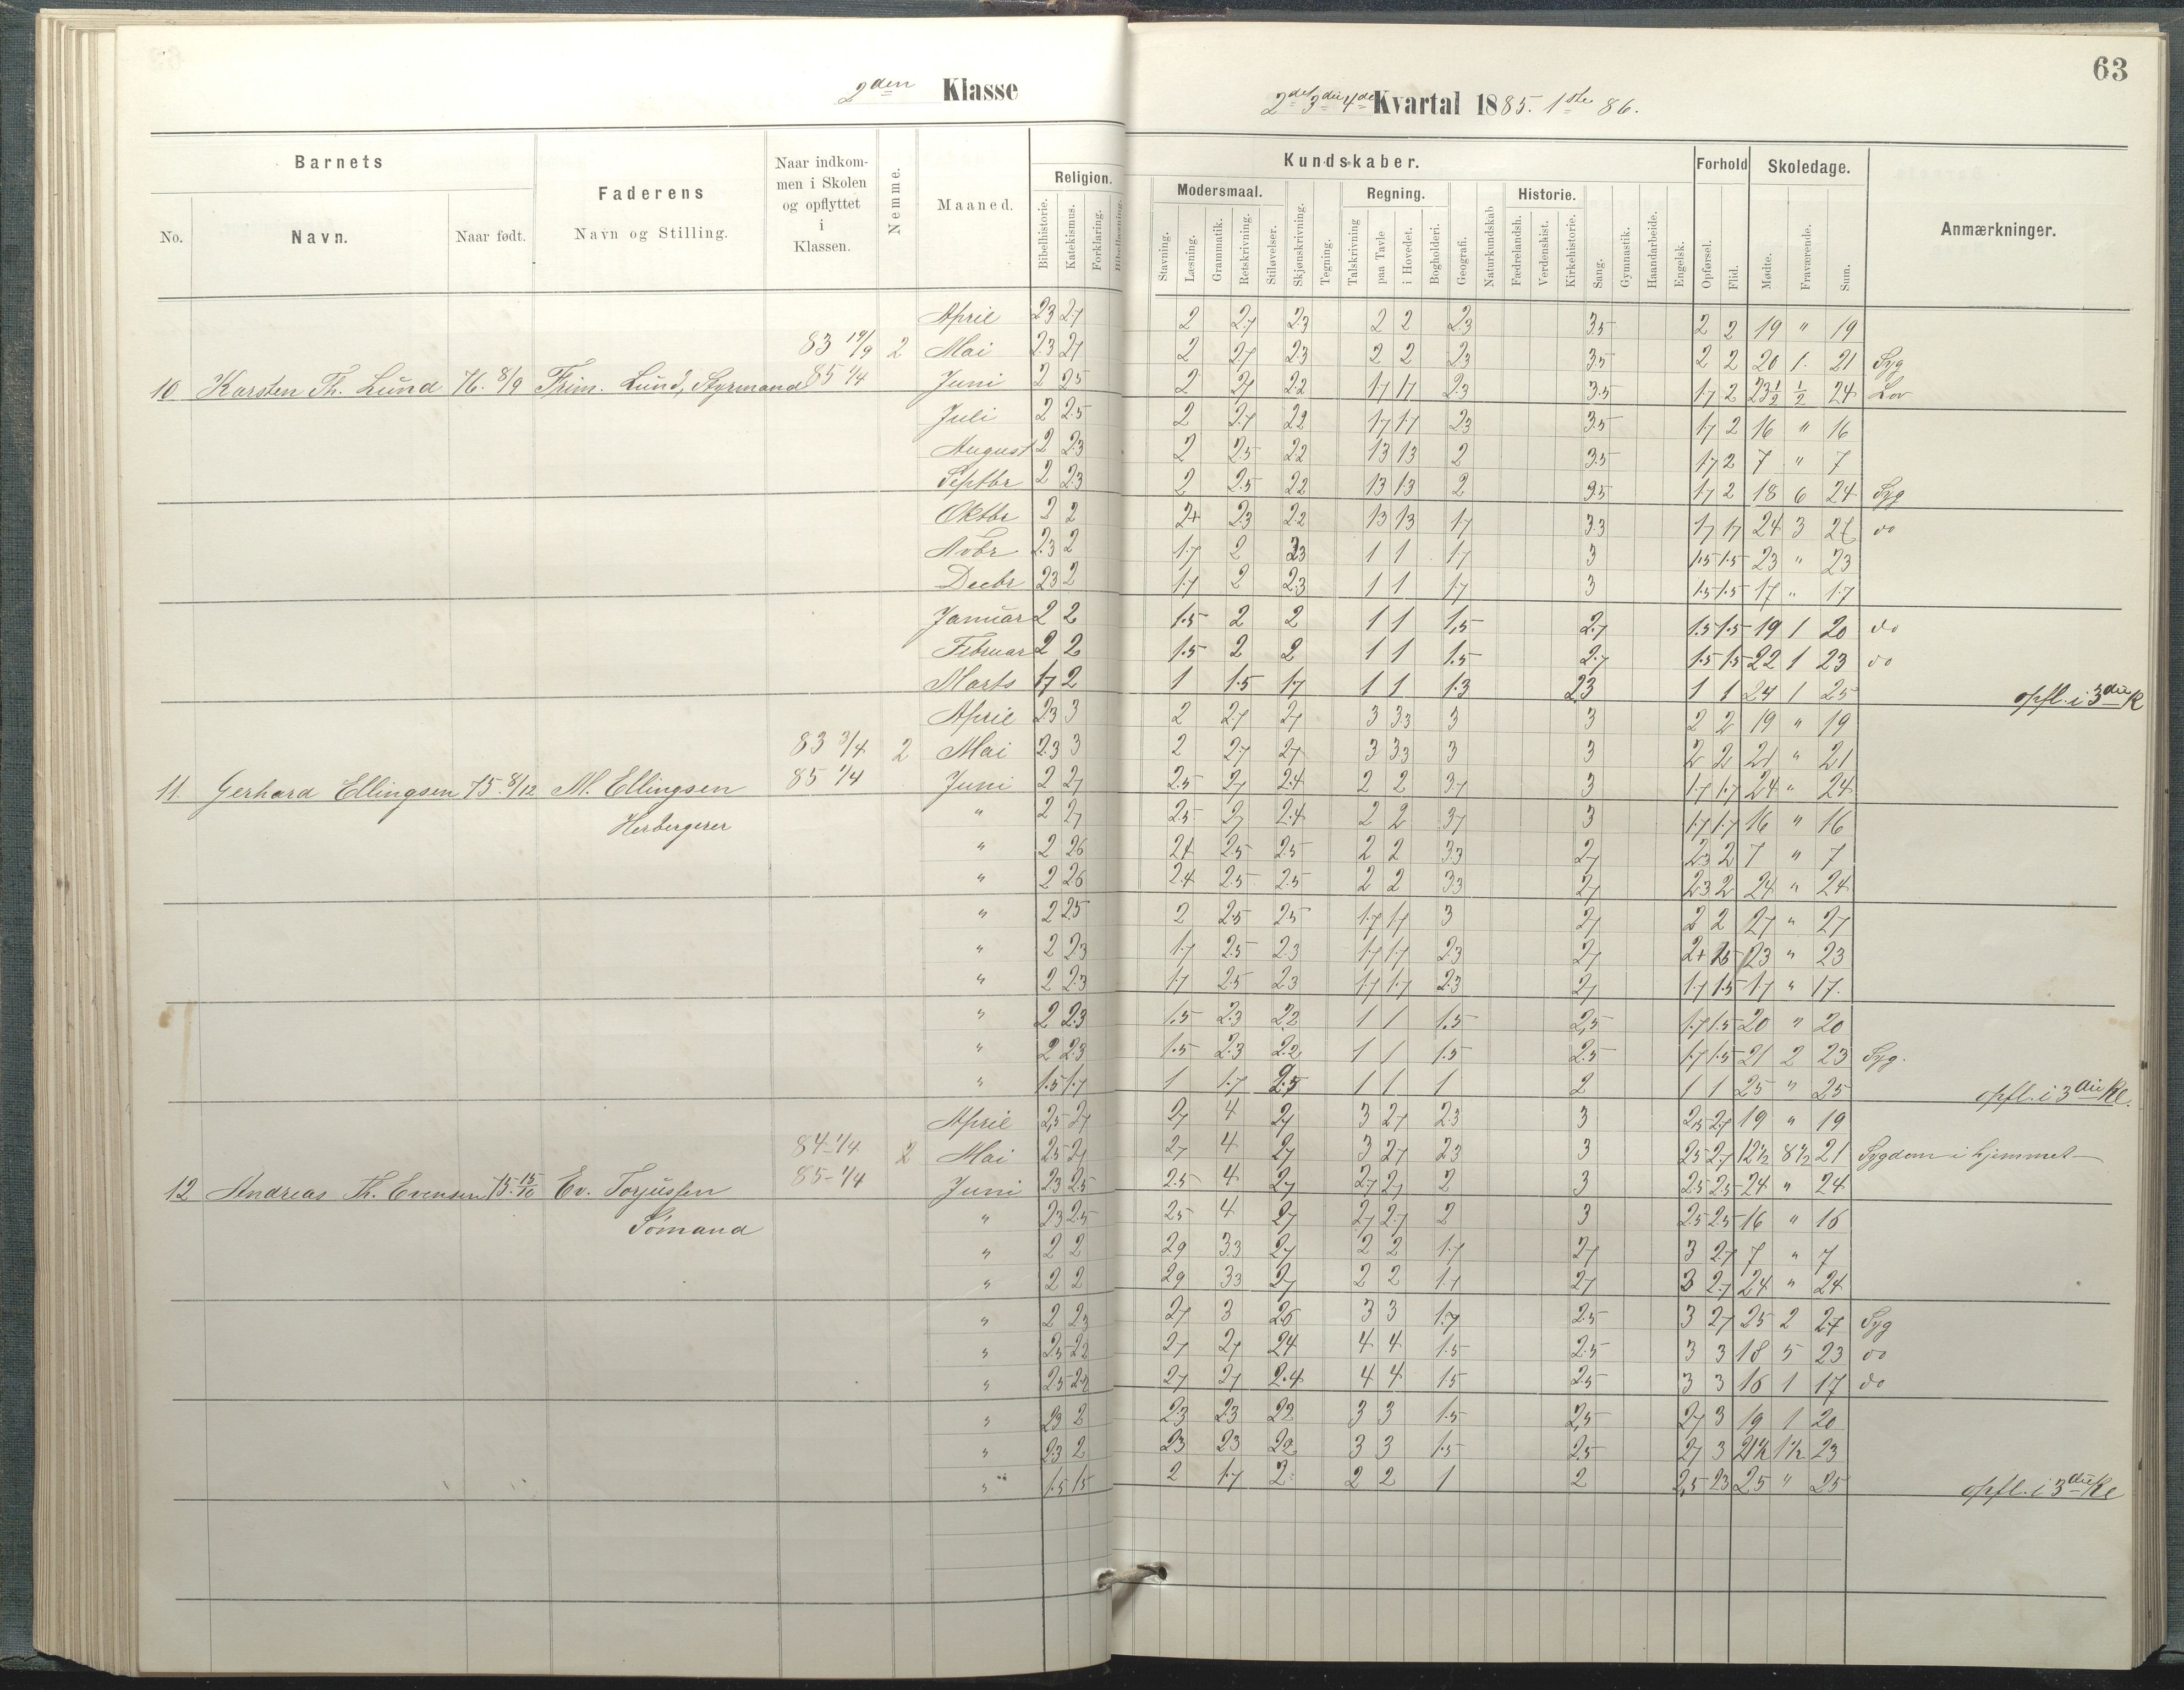 63
2den Klasse
2det 3die 4de Kvartal 1885. 1ste 86.
Barnets
Faderens
Navn og Stilling.
Naar indkom-
men i Skolen
og opflyttet
i
Klassen.
Nemme.
Maaned.
Religion.
Kundskaber.
Forhold
Skoledage.
Anmærkninger.
No.
Navn.
Naar født.
Bibelhistorie.
Katekismus.
Forklaring.
Bibellæsning.
Modersmaal.
Stavning.
Læsning.
Grammatik.
Retskrivning.
Stiløvelser.
Skjønskrivning.
Tegning.
Regning.
Talskrivning
paa Tavle
i Hovedet.
Bogholderi.
Geografi.
Naturkundskab
Historie.
Fædrelandsh.
Verdenshist.
Kirkehistorie.
Sang.
Gymnastik.
Haandarbeide.
Engelsk.
Opførsel.
Flid.
Mødte.
Fraværende.
Sum.
April 2.3 2.7 2 2.7 2.3 2 2 2.3 3.5 2 2 19 " 19
83 19/9 2 Mai 2.3 2.7 2 2.7 2.3 2 2 2.3 3.5 2 2 20 1. 21 Syg
10 Karsten Th. Lund 76. 8/9 Trim. Lund, Styrmand 85 1/4 Juni 2 2.5 2 2.7 2.2 1.7 1.7 2.3 3.5 1.7 2 23½ ½ 24 Lov
Juli 2 2.5 2 2.7 2.2 1.7 1.7 2.3 3.5 1.7 2 16 " 16
August 2 2.3 2 2.5 2.2 1.3 1.3 2 3.5 1.7 2 7 " 7
Septbr 2 2.3 2 2.5 2.2 1.3 1.3 2 3.5 1.7 2 18 6 24 Syg
Oktbr 2 2 2+ 2.3 2.2 1.3 1.3 1.7 3.3 1.7 1.7 24 3 do
Novbr 2.3 2 1.7 2 2.3 1 1 1.7 3 1.5 1.5 23 " 23
Decbr 2.3 2 1.7 2 2.3 1 1 1.7 3 1.5 1.5 17 " 17
Januar 2 2 1.5 2 2 1 1 1.5 2.7 1.5 1.5 19 1 20 do
Februar 2 2 1.5 2 2 1 1 1.5 2.7 1.5 1.5 22 1 23 do
Marts 1.7 2 1 1.5 1.7 1 1 1.3 2.3 1 1 24 1 25 opfl. i 3die K
April 2.3 3 2 2.7 2.7 3 3.3 3 3 2 2 19 " 19
83 3/4 2 Mai 2.3 3 2 2.7 2.7 3 3.3 3 3 2 2 21 " 21
11. Gerhard Ellingsen 75. 8/12 M. Ellingsen 85 1/4 Juni 2 2.7 2.5 2.7 2.4 2 2 3.7 3 1.7 1.7 24 " 24
Herbergerer " 2 2.7 2.5 2.7 2.4 2 2 3.7 3 1.7 1.7 16 " 16
" 2 2.6 2.4 2.5 2.5 2 2 3.3 2.7 2.3 2 7 " 7
" 2 2.6 2.4 2.5 2.5 2 2 3.3 2.7 2.3 2 24 " 24
" 2 2.5 2 2.5 2.5 1.7 1.7 3 2.7 2 2 27 " 27
" 2 2.3 1.7 2.5 2.3 1.7 1.7 2.3 2.7 2+ 1.5 23 " 23
" 2 2.3 1.7 2.5 2.3 1.7 1.7 2.3 2.7 1.7 1.5 17 " 17.
" 2 2.3 1.5 2.3 2.2 1 1 1.5 2.5 1.7 1.5 20 " 20
" 2 2.3 1.5 2.3 2.2 1 1 1.5 2.5 1.7 1.5 21 2 23 Syg.
" 1.5 1.7 1 1.7 1 1 1 2 1 1 25 " 25 opfl. i 3die Kl.
April 2.5 2.7 2.7 4 2.7 3 2.7 2.3 3 2.5 2.7 19 " 19
84-1/4 2 Mai 2.5 2.7 2.7 4 2.7 3 2.7 2.3 3 2.5 2.7 12½ 8½ 21 Sygdom i hjemmet
12 Andreas Th. Evensen 75. 15/10 Ev. Torjussen 85-1/4 Juni 2.3 2.5 2.5 4 2.7 2.7 2.7 2 3 2.5 2.5 24 " 24
Sømand " 2.3 2.5 2.5 4 2.7 2.7 2.7 2 3 2.5 2.5 16 " 16
" 2 2 2.9 3.3 2.7 2 2 1.7 2.7 3 2.7 7 " 7
" 2 2 2.9 3.3 2.7 2 2 1.7 2.7 3 2.7 24 " 24
" 2 2.3 2.7 3 2.6 3 3 1.7 2.5 3 2.7 25 2 27 Syg
" 2.5 2.2 2.7 2.7 2.4 4 4 1.5 2.5 3 3 18 5 23 do
" 2.5 2.2 2.7 2.7 2.4 4 4 1.5 2.5 3 3 16 1 17 do
" 2.3 2 2.3 2.3 2.2 3 3 1.5 2.5 2.7 3 19 1 20
" 2.3 2 2.3 2.3 2.2 3 3 1.5 2.5 2.7 3 21½ 1½ 23
" 1.5 1.5 2 1.7 2 2 2 1 2 2.5 2.3 25 " 25 opfl. i 3die Kl